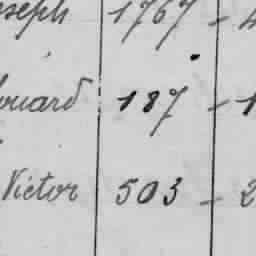 oseph 1767 - 4
ouard 187 - 1
Victor 503 - 2